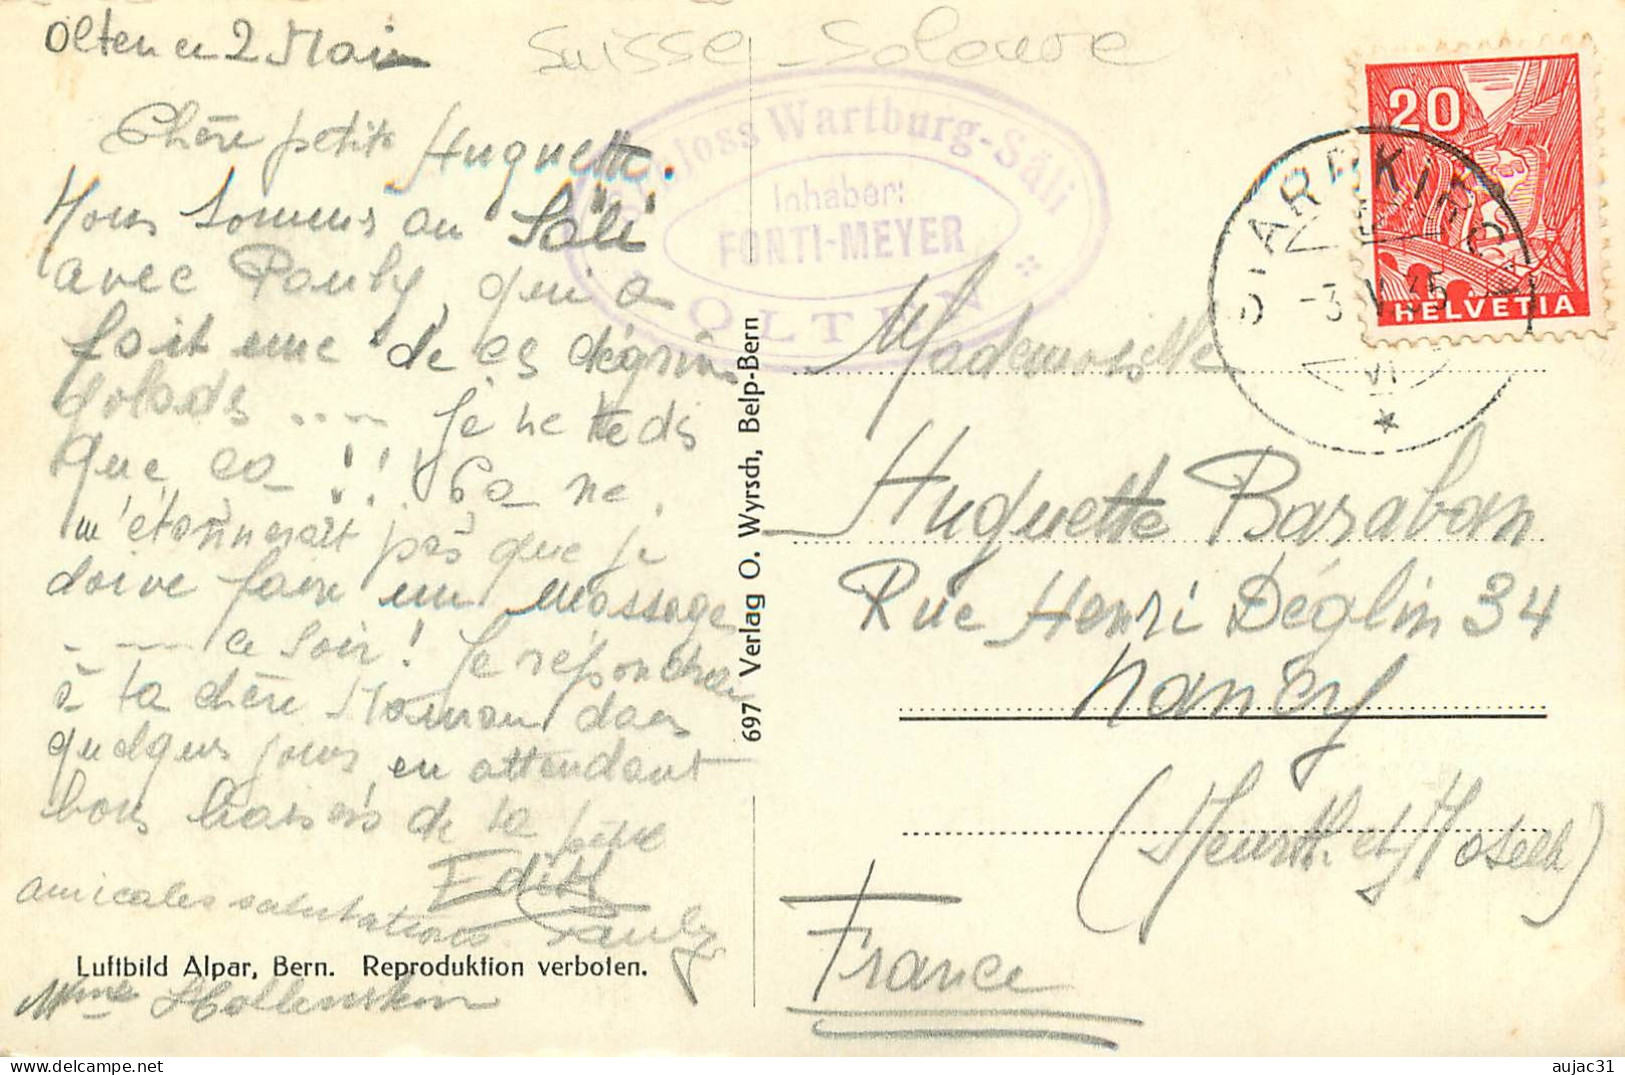 Olten le 2 Mai
Suisse - Soleure
Chère petite Huguette.
Nous sommes au Säli
avec Pauly, qui a
fait une de ces dégrin
golads .... Je ne te dis
que ça !! ! Ça ne
m'étonnerait pas que je
doive faire un massage
... ce soir ! Je répondrai
à ta chère Maman dans
quelques jours en attendant
bons baisers de ta petite
Edith
amicales salutations Pauly
Luftbild Alpar, Bern. Reproduktion verboten.
Mme
697 Verlag O. Wyrsch, Belp-Bern
Schloss Wartburg-Säli
Inhaber:
FONTI-MEYER
OLTEN
20
HELVETIA
AARBURG
-3.V.35
Mademoiselle
Huguette Baraban
Rue Henri Déglin 34
Nancy
(Meurth. et Moselle)
France
aujac31